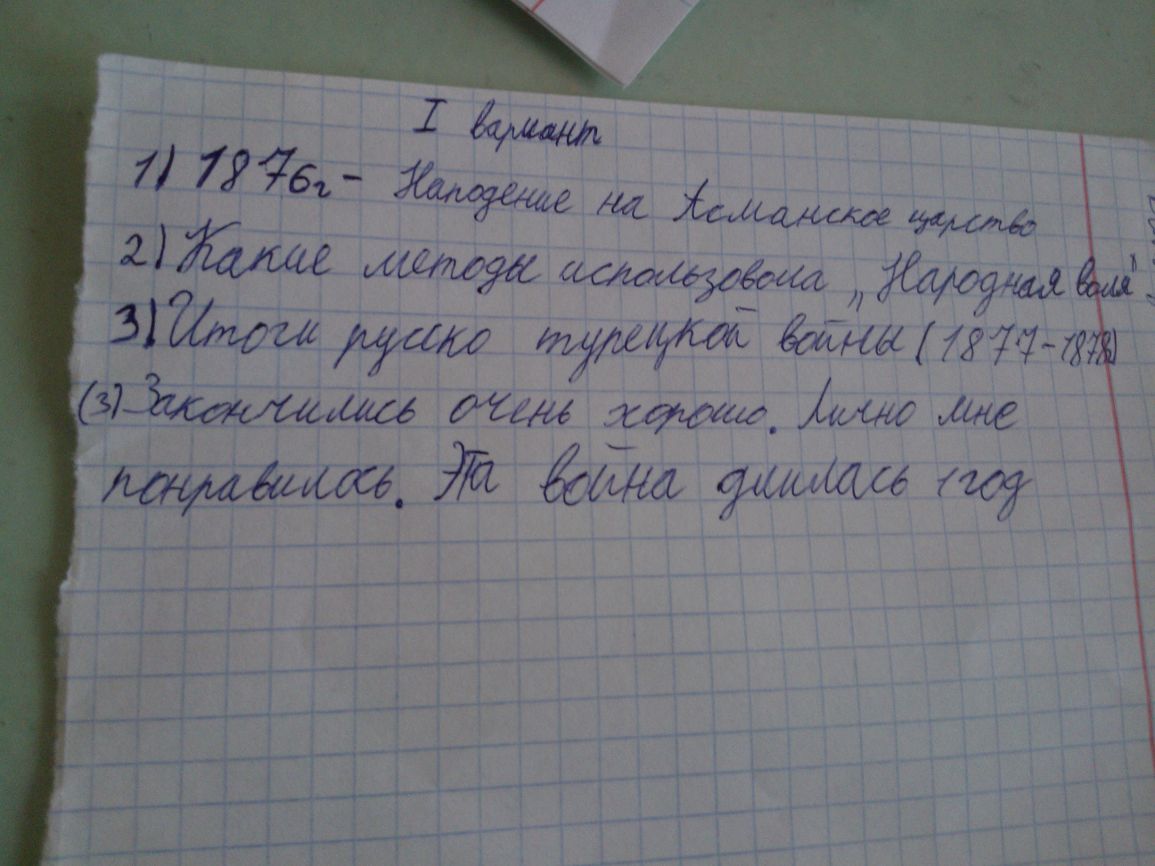 I вариант
1) 1876г - Нападение на Асманское царство
2) Какие методы использовола „Народная воля"
3) Итоги русско турецкой войны (1877-1878)
(3) Закончились очень хорошо. Лично мне
понравилось. Эта война длилась 1 год